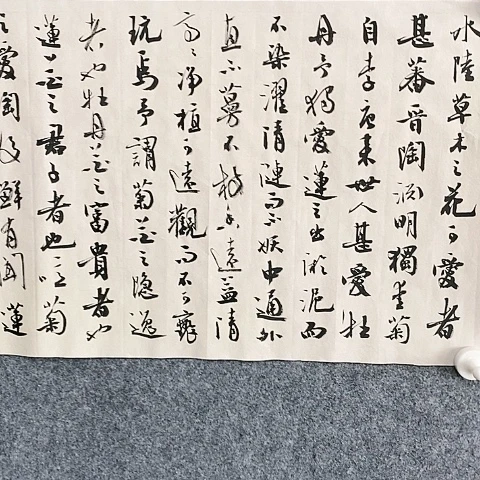 水陸草木之花可愛者
甚蕃晋陶渊明獨爱菊
自李唐来世人甚愛牡
丹予独愛蓮之出淤泥而
不染濯清漣而不妖中通外
直不蔓不枝香遠益清
亭々净植可遠觀而不可褻
玩焉予謂菊花之隐逸
者也牡丹花之富貴者也
蓮花之君子者也噫菊
之愛陶後鮮有聞蓮